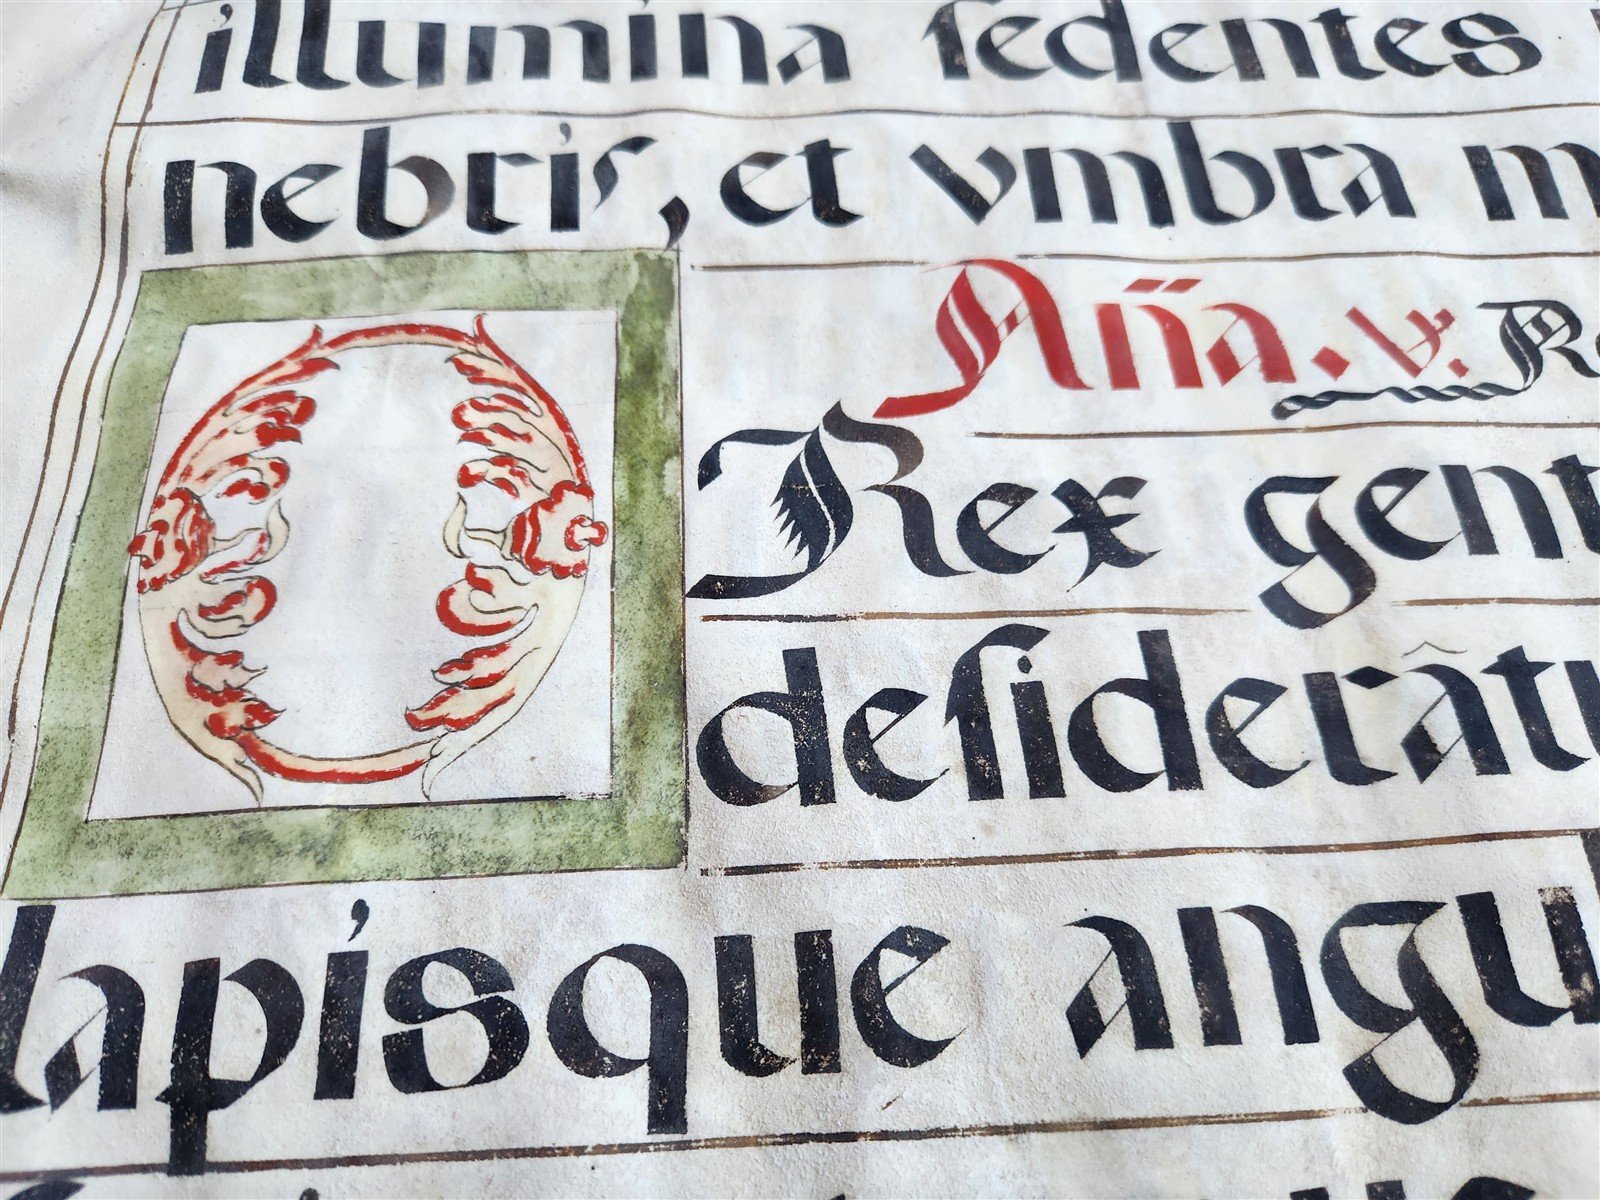 illumina sedentes
nebris, et vmbra m
Aña. v. R
O Rex gent
desiderâtu
lapisque angu